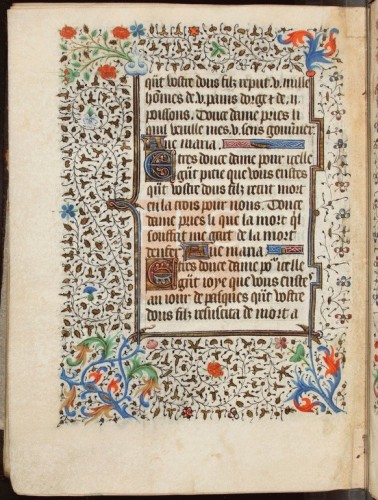 qñt vostre dous filz reput .v. mille
hōmes de .v. pains dorge ⁊ de .ii.
poissons. Douce dame pries li
qui veulle mes .v. sens gouuerner
Aue maria.
Et tres douce dame pour icelle
gñt pitie que vous eustes
qñt vostre dous filz recut mort
en la crois pour nous. Douce
dame pries li que la mort ql
souffri me gart de la mort
denfer Aue maria.
Et tres douce dame po² icelle
gñt ioye que vous eustes
au iour de pasques qñt vostre
dous filz resuscita de mort a